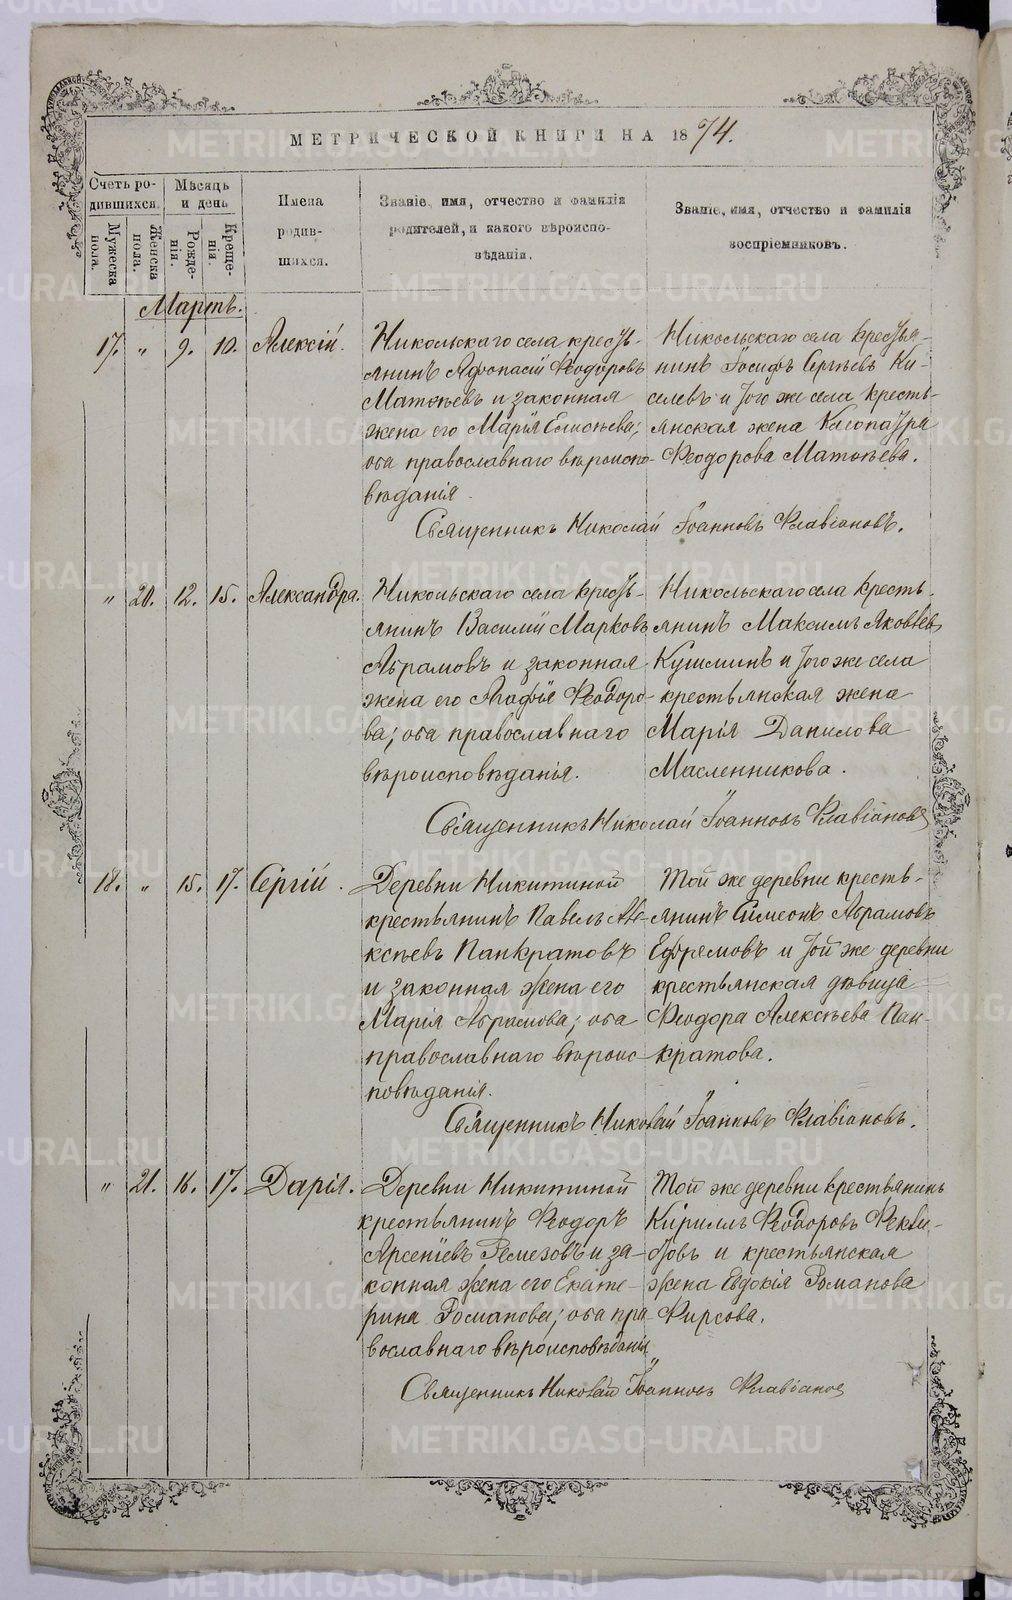 МЕТРИЧЕСКОЙ КНИГИ НА 1874.
Счетъ ро-
дившихся.
Мѣсяцъ
и день
Имена
родив-
шихся.
Званіе, имя, отчество и фамилія
родителей, и какого вѣроиспо-
вѣданія.
Званіе, имя, отчество и фамилія
воспріемниковъ.
Мужеска
пола.
Женска
пола.
Рожде-
нія.
Креще-
нія.
Мартъ.
17. " 9. 10. Алексій.
Никольскаго села кресть-
янинъ Афонасій Феодоровъ
Матвѣевъ и законная
жена его Марія Емельева;
оба православнаго вѣроиспо-
вѣданія.
Никольскаго села крестья-
нинъ Іосифъ Сергѣевъ Ки-
селевъ и того же села кресть-
янская жена Клеопатра
Феодорова Матвѣева.
Священникъ Николай Іоанновъ Флавіановъ.
" 20. 12. 15. Александра.
Никольскаго села кресть-
янинъ Василій Марковъ
Абрамовъ и законная
жена его Агафія Феодоро-
ва; оба православнаго
вѣроисповѣданія.
Никольскаго села кресть-
янинъ Максимъ Яковлевъ
Кушминъ и того же села
крестьянская жена
Марія Данилова
Масленникова.
Священникъ Николай Іоанновъ Флавіановъ
18. " 15. 17. Сергій.
Деревни Никитиной
крестьянинъ Павелъ Але-
ксѣевъ Панкратовъ
и законная жена его
Марія Абрамова; оба
православнаго вѣроис-
повѣданія.
Той же деревни кресть-
янинъ Симеонъ Абрамовъ
Ефремовъ и той же деревни
крестьянская дѣвица
Феодора Алексѣева Пан-
кратова.
Священникъ Николай Іоанновъ Флавіановъ.
" 21. 16. 17. Дарія.
Деревни Никитиной
крестьянинъ Феодоръ
Арсеніевъ Ремезовъ и за-
конная жена его Екате-
рина Романова; оба пра-
вославнаго вѣроисповѣданія
Той же деревни крестьянинъ
Кириллъ Феодоровъ Фекли-
стовъ и крестьянская
жена Евдокія Романова
Фирсова.
Священникъ Николай Іоанновъ Флавіановъ
METRIKI.GASO-URAL.RU